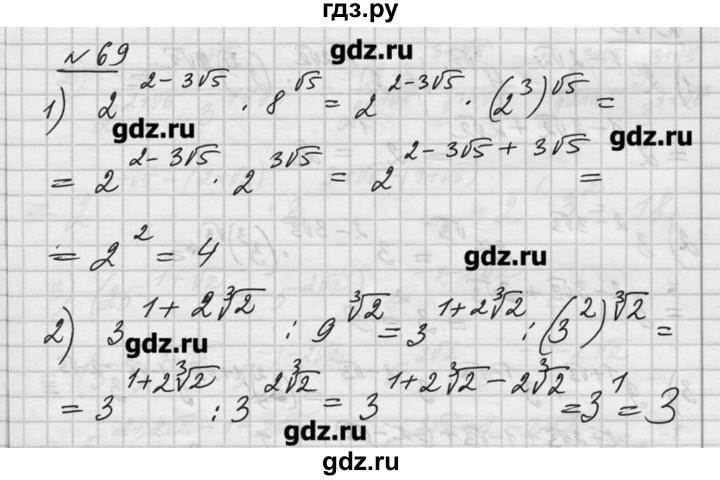 гдз.ру
№ 69
gdz.ru
1) 2^{2-3√5} · 8^{√5} = 2^{2-3√5} · (2^3)^{√5} =
gdz.ru
gdz.ru
= 2^{2-3√5} · 2^{3√5} = 2^{2-3√5+3√5} =
= 2^2 = 4
gdz.ru
2) 3^{1+2∛2} : 9^{∛2} = 3^{1+2∛2} : (3^2)^{∛2} =
gdz.ru
= 3^{1+2∛2} : 3^{2∛2} = 3^{1+2∛2-2∛2} = 3^1 = 3
gdz.ru
gdz.ru